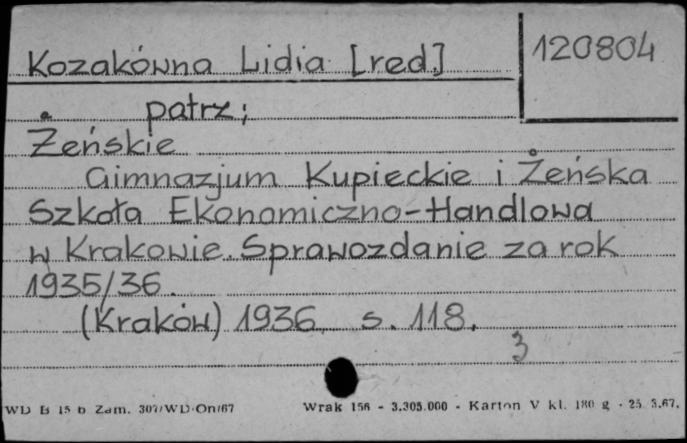 Kozakówna Lidia [red.]
120804
patrz;
Żeńskie
Gimnazjum Kupieckie i Żeńska
Szkoła Ekonomiczno-Handlowa
w Krakowie. Sprawozdanie za rok
1935/36.
(Kraków) 1936. s. 118.
3
WD B 15 b Zam. 307/WD-On/67 Wrak 156 - 3.305.000 - Karton V kl. 180 g - 25. 3.67.